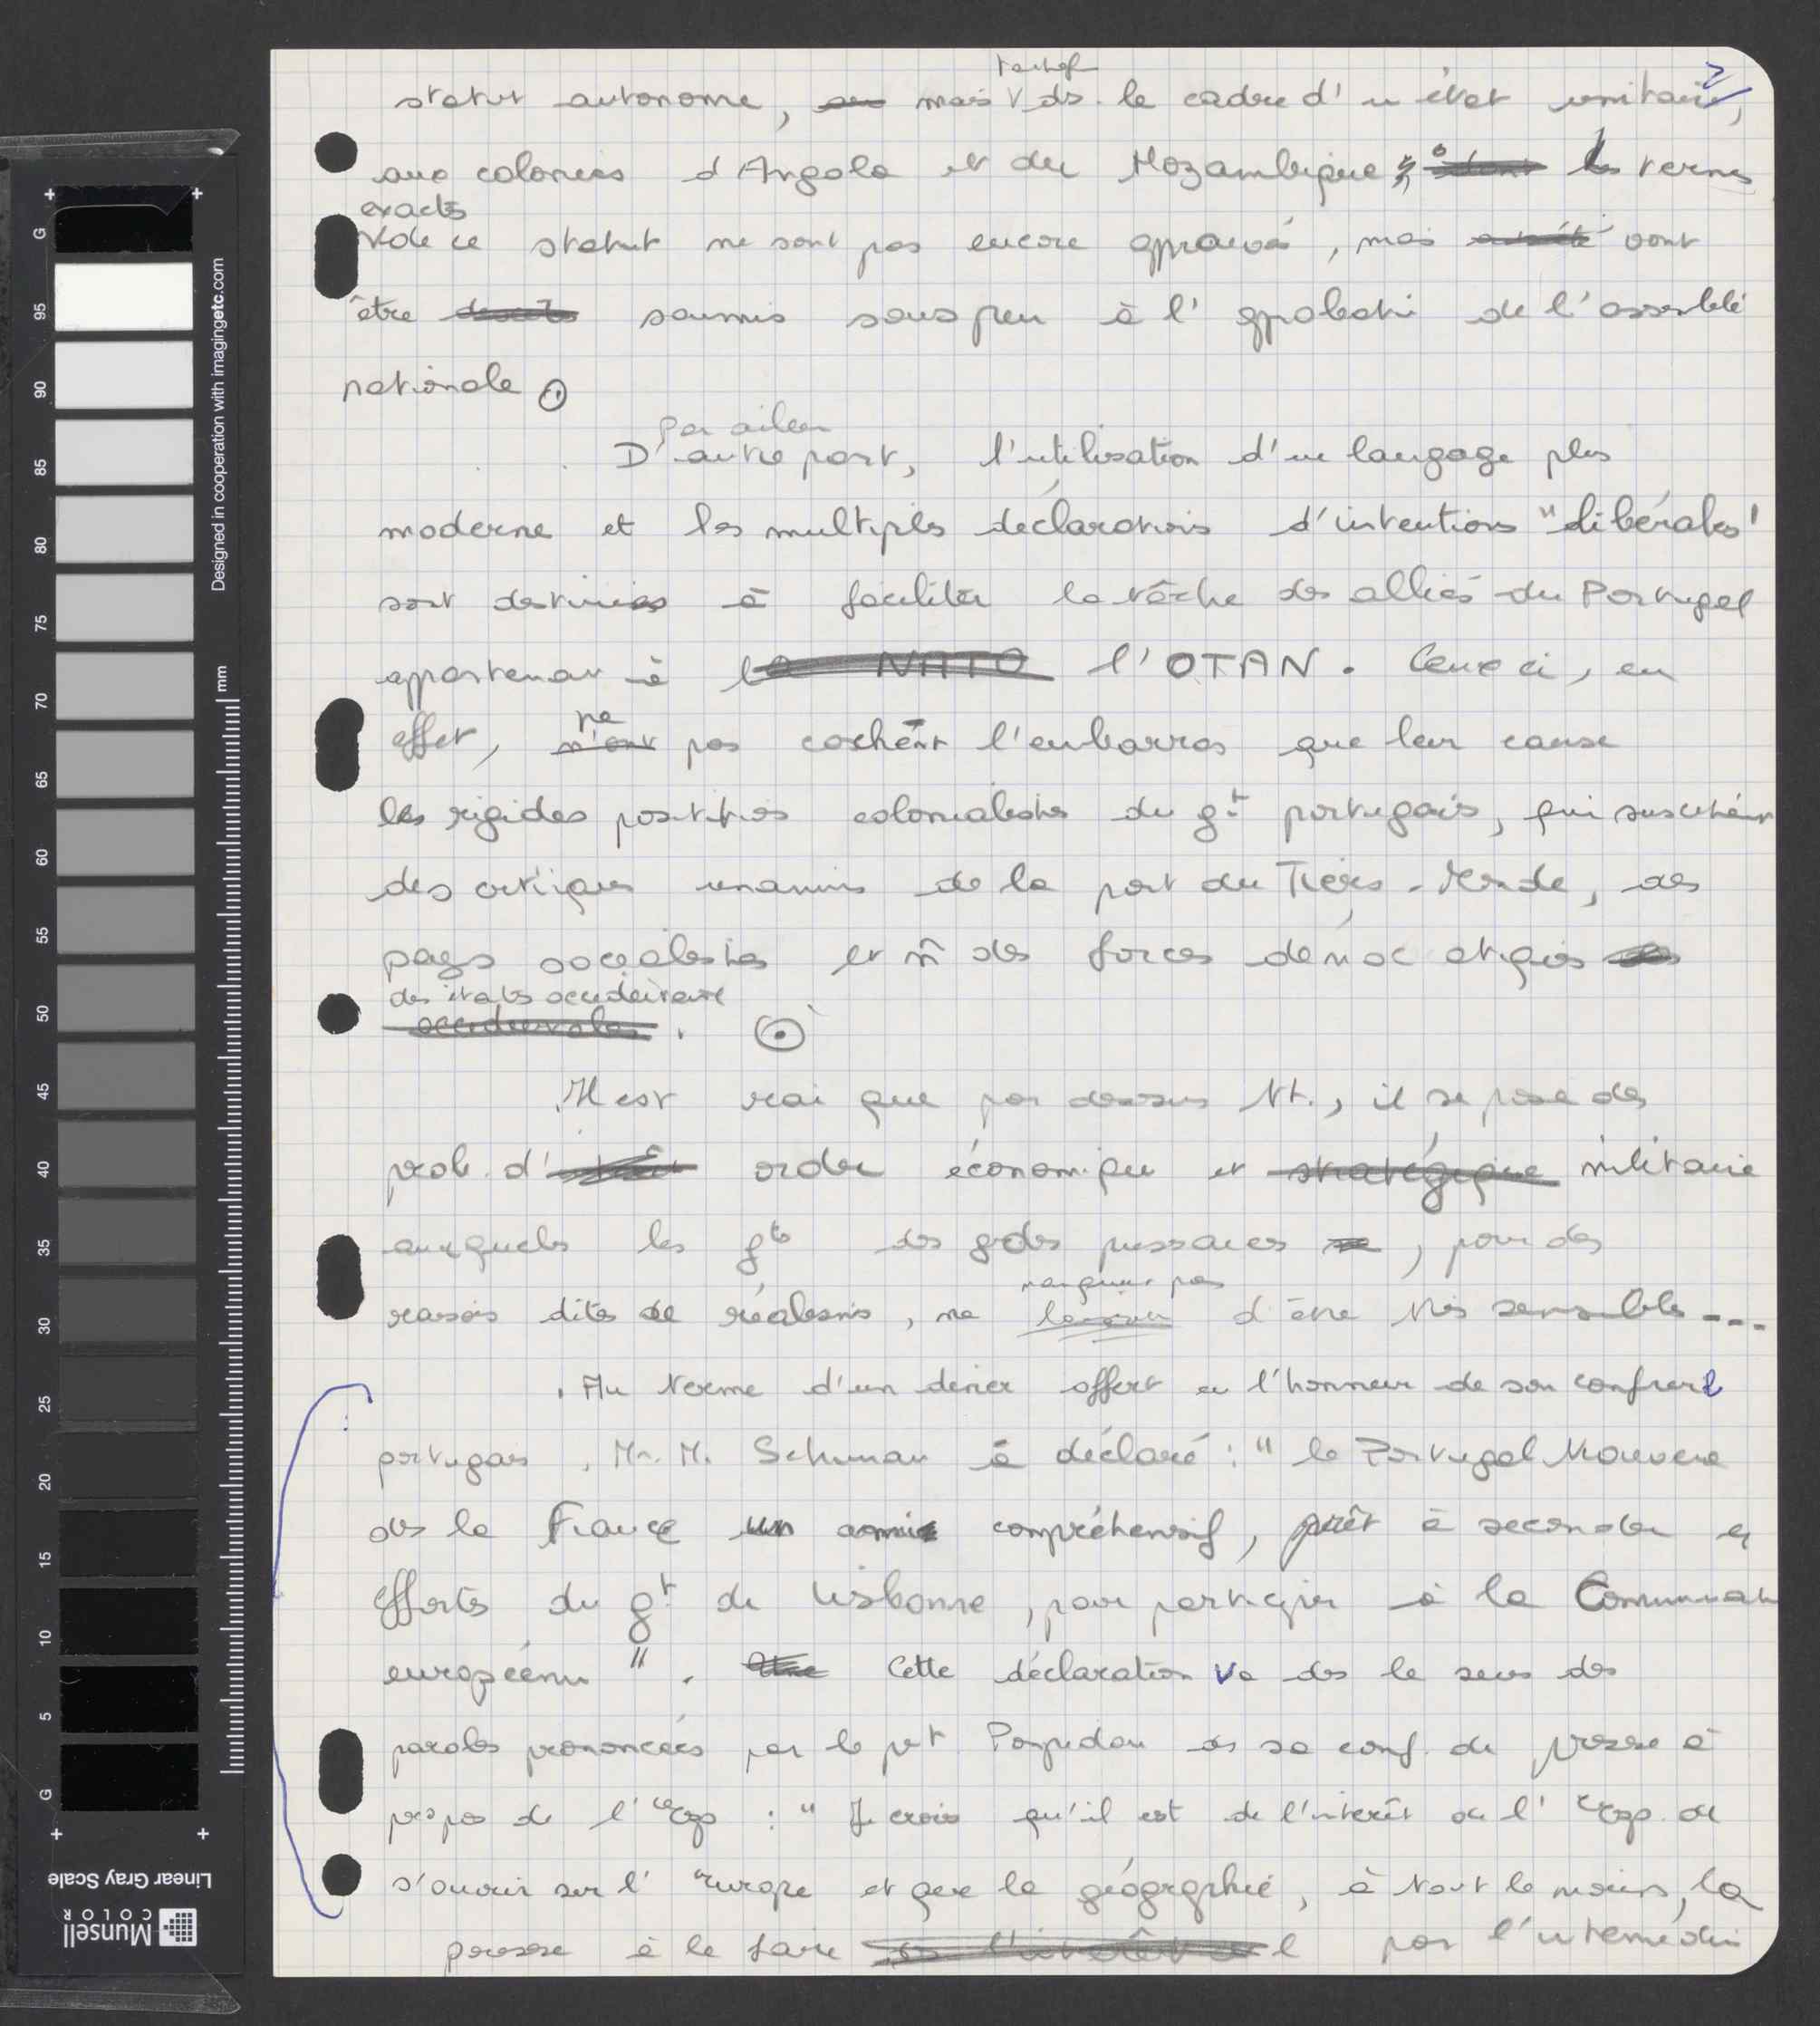 statut autonome, mais ds. le cadre d'un état unitaire,
aux colonies d'Angola et du Mozambique; les termes
exacts
de ce statut ne sont pas encore approuvés, mais vont
être soumis sous peu à l'approbati de l'assemblé
nationale.
Par ailleu
D'autre part, l'utilisation d'un langage plus
moderne et les multiples déclarations d'intentions "libérales"
sont destinées à faciliter la tâche des alliés du Portugal
appartenant à la NATO l'OTAN. Ceux ci, en
ne
effet, n'ont pas cachent l'embarras que leur cause
les rigides positions colonialistes du gt portugais, qui suscitent
des critiques unanimes de la part du Tiers-Monde, des
pays socialistes et m̂ des forces démoc atiques
des états occidentaux
occidentales.
Il est vrai que par dessus tt., il se pose des
prob. d' ordre économique et stratégique militaire
auxquels les gts des gdes puissances, pour des
manquent pas
raisons dites de réalisme, ne d'être très sensibles...
Au terme d'un diner offert en l'honneur de son confrere
portugais, Mr. M. Schuman à déclaré: "le Portugal trouvera
ds la France un ami compréhensif, prêt à seconder les
efforts du gt de Lisbonne, pour participer à la Communauté
européenne". Cette déclaration va ds le sens des
paroles prononcées par le pt Pompidou ds sa conf. de presse à
propos de l'Esp: "Je crois qu'il est de l'interêt de l'Esp. de
s'ouvrir sur l'Europe et que la géographie, à tout le moins, la
pousse à le faire par l'intermédiai
G 95 90 85 80 75 70 65 60 55 50 45 40 35 30 25 20 15 10 5 G
mm
Designed in cooperation with imagingetc.com
Linear Gray Scale
Munsell
COLOR